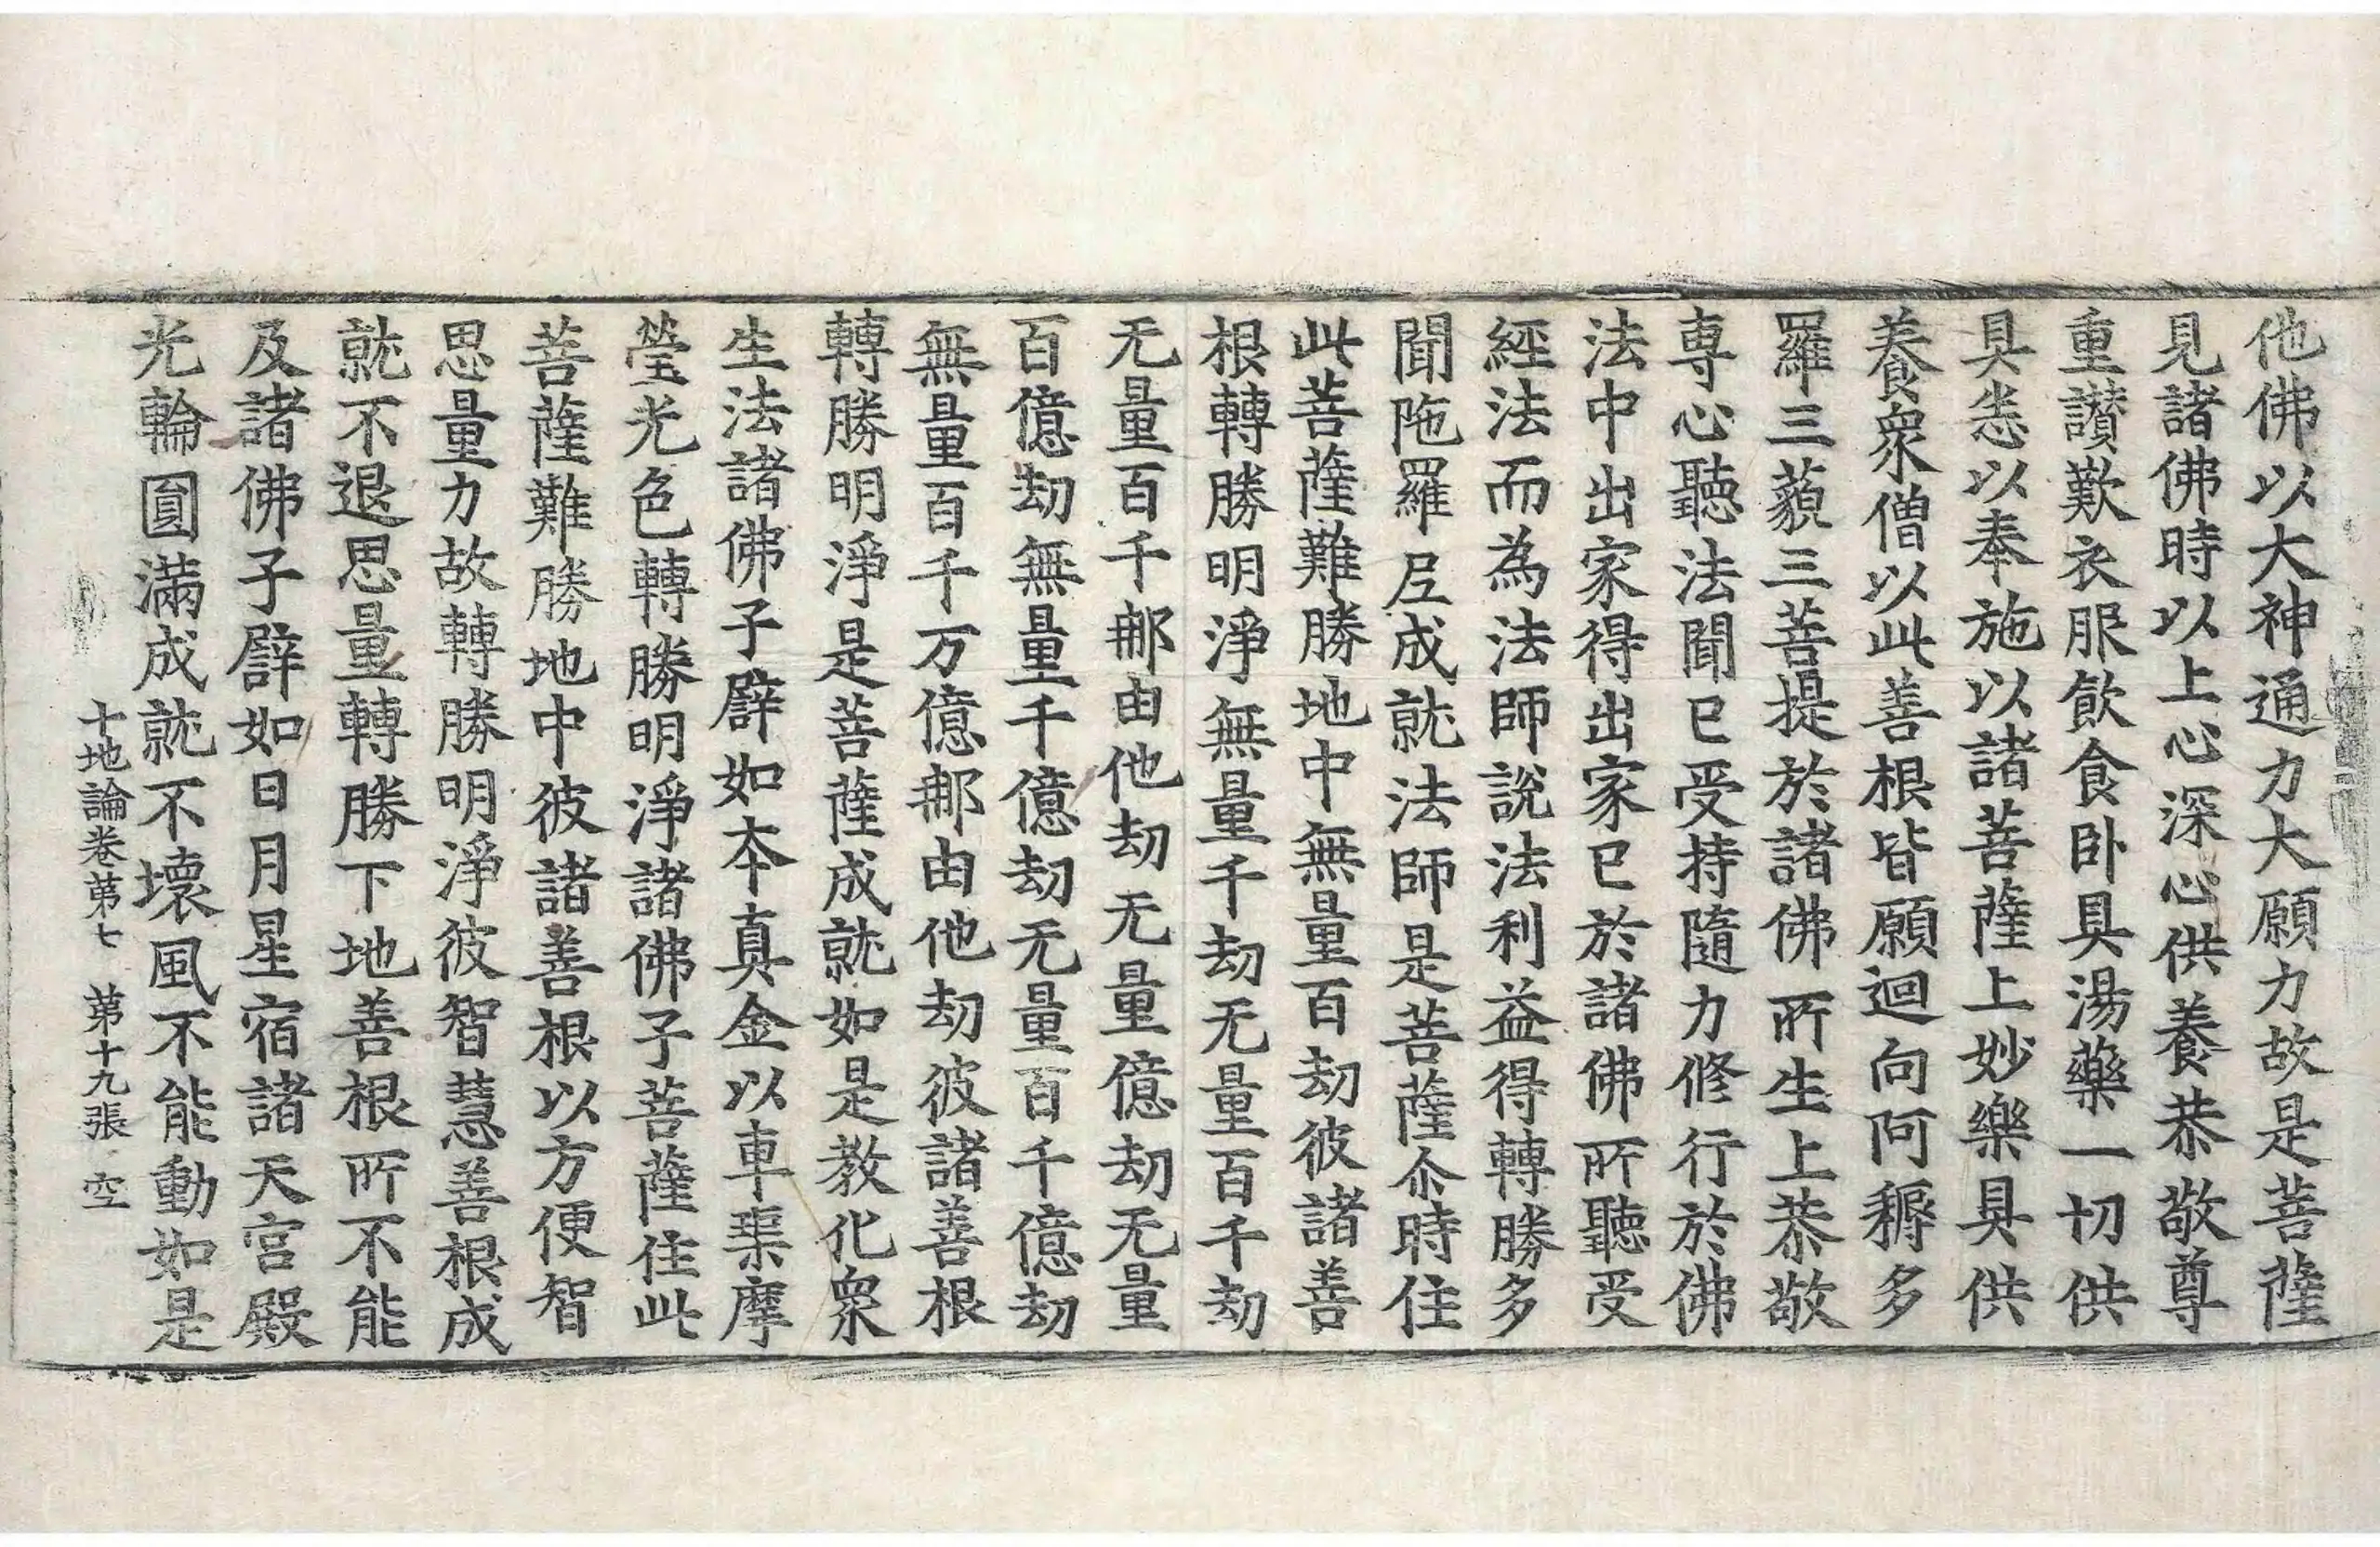 他佛以大神通力大願力故是菩薩
見諸佛時以上心深心供養恭敬尊
重讃歎衣服飲食卧具湯藥一切供
具悉以奉施以諸菩薩上妙樂具供
養衆僧以此善根皆願迴向阿耨多
羅三藐三菩提於諸佛所生上恭敬
専心聽法聞已受持隨力修行於佛
法中出家得出家已於諸佛所聽受
經法而為法師說法利益得轉勝多
聞陁羅尼成就法師是菩薩尒時住
此菩薩難勝地中無量百劫彼諸善
根轉勝明淨無量千劫无量百千劫
无量百千那由他劫无量億劫无量
百億劫無量千億劫无量百千億劫
無量百千万億那由他劫彼諸善根
轉勝明淨是菩薩成就如是教化衆
生法諸佛子譬如本真金以車𤦲摩
瑩光色轉勝明淨諸佛子菩薩住此
菩薩難勝地中彼諸善根以方便智
思量力故轉勝明淨彼智慧善根成
就不退思量轉勝下地善根所不能
及諸佛子譬如日月星宿諸天宫殿
光輪圓滿成就不壞風不能動如是
十地論卷苐七 苐十九張 空